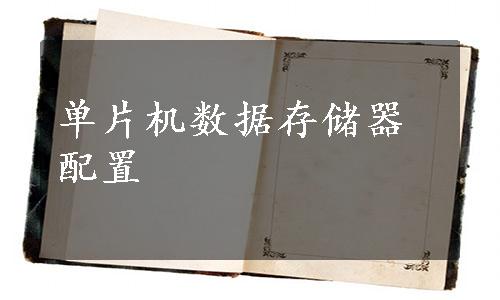 单片机数据存储器
配置